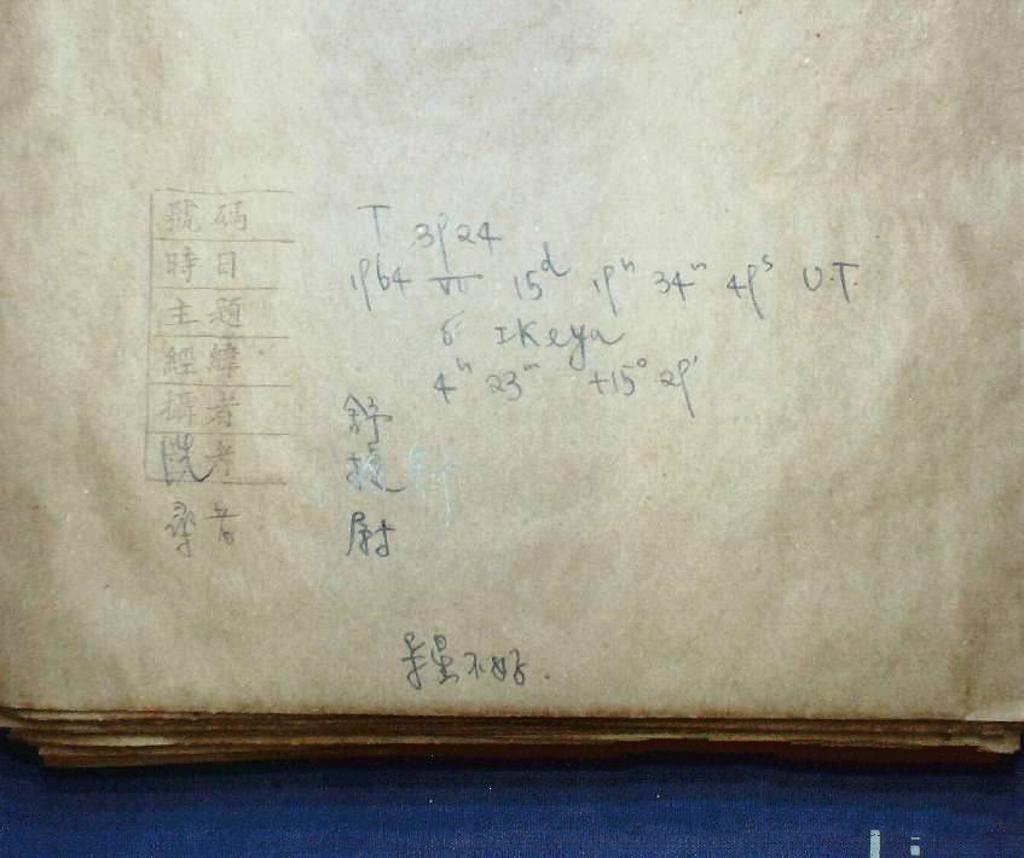 號碼 T 3924
時日 1964 VII 15ᵈ 19ʰ 34ᵐ 49ˢ U.T.
主題 Ikeya
經緯 4ʰ 23ᵐ +15° 29'
攝者 舒
洗者
者 尉
星不好.